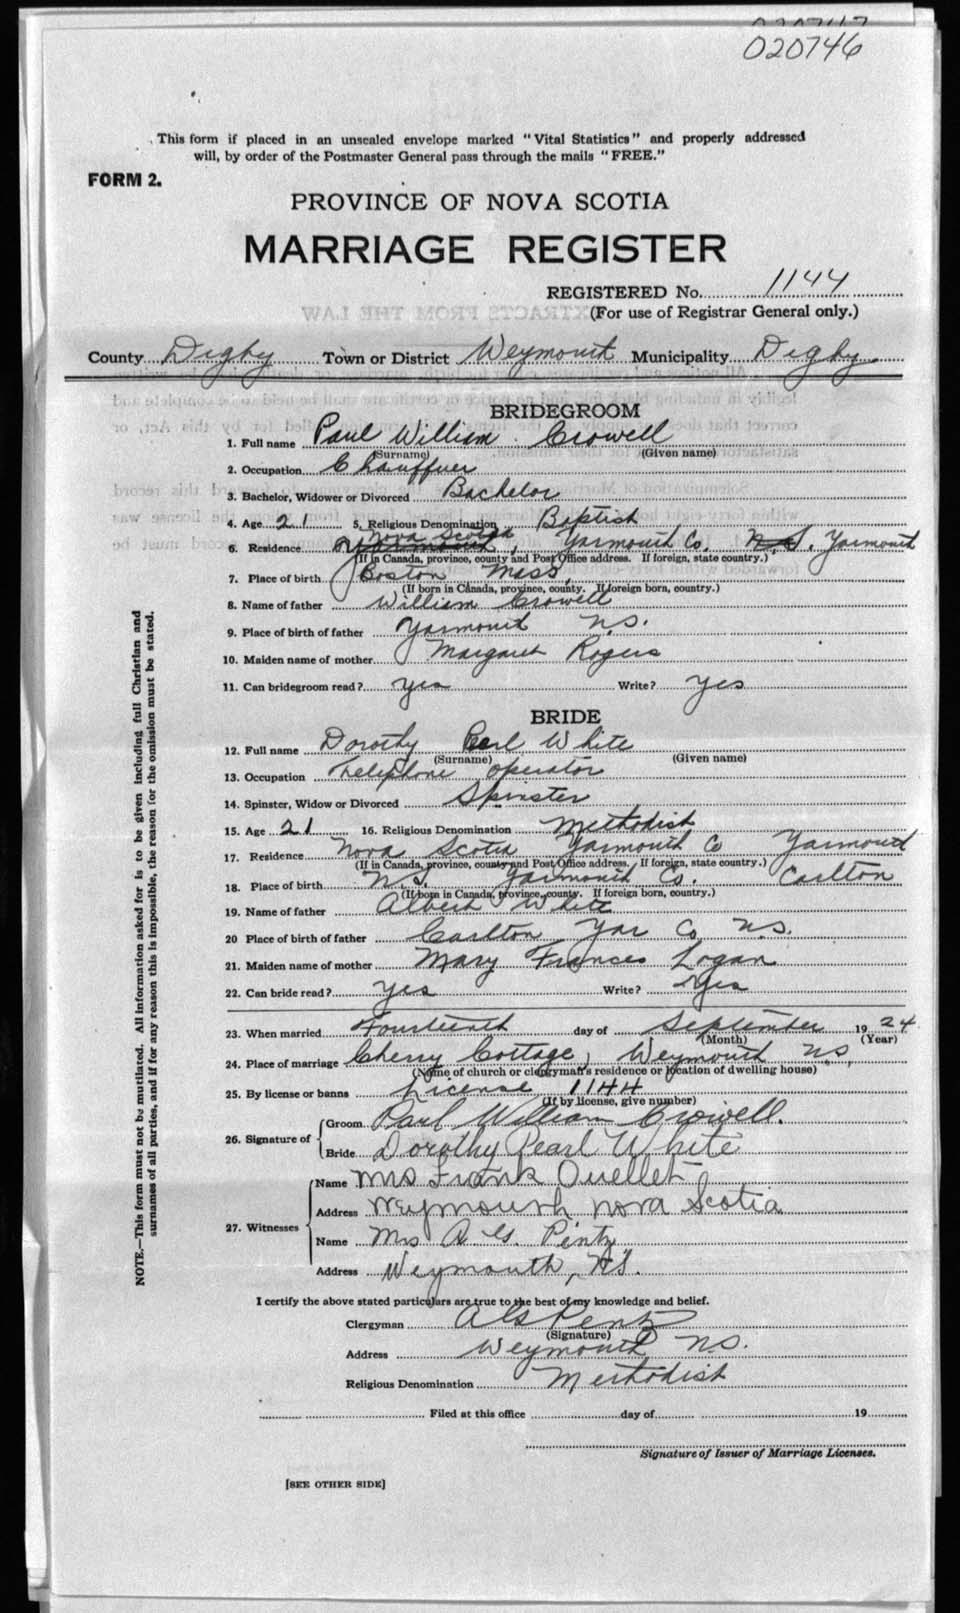 020747
020746
This form if placed in an unsealed envelope marked "Vital Statistics" and properly addressed
will, by order of the Postmaster General pass through the mails "FREE."
FORM 2.
PROVINCE OF NOVA SCOTIA
MARRIAGE REGISTER
REGISTERED No. 1144
(For use of Registrar General only.)
County Digby Town or District Weymouth Municipality Digby
BRIDEGROOM
1. Full name Paul William Crowell
(Surname) (Given name)
2. Occupation Chauffuer
3. Bachelor, Widower or Divorced Bachelor
4. Age 21 5. Religious Denomination Baptist
6. Residence Yarmouth Nova Scotia, Yarmouth Co. N.S. Yarmouth
(If in Canada, province, county and Post Office address. If foreign, state country.)
7. Place of birth Boston Mass,
(If born in Canada, province, county. If foreign born, country.)
8. Name of father William Crowell
9. Place of birth of father Yarmouth N.S.
10. Maiden name of mother Margaret Rogers
11. Can bridegroom read? yes Write? yes
BRIDE
12. Full name Dorothy Pearl White
(Surname) (Given name)
13. Occupation Telephone operator
14. Spinster, Widow or Divorced Spinster
15. Age 21 16. Religious Denomination Methodist
17. Residence Nova Scotia Yarmouth Co Yarmouth
(If in Canada, province, county and Post Office address. If foreign, state country.)
18. Place of birth N.S. Yarmouth Co. Carlton
(If born in Canada, province, county. If foreign born, country.)
19. Name of father Albert White
20 Place of birth of father Carlton Yar Co N.S.
21. Maiden name of mother Mary Frances Logan
22. Can bride read? yes Write? Yes
23. When married Fourteenth day of September 1924
(Month) (Year)
24. Place of marriage Cherry Cottage, Weymouth N.S,
(Name of church or clergyman's residence or location of dwelling house)
25. By license or banns License 1144
(If by license, give number)
26. Signature of
Groom Paul William Crowell.
Bride Dorothy Pearl White
27. Witnesses
Name Mrs Frank Ouellet
Address Weymouth Nova Scotia
Name Mrs A. G. Pentz
Address Weymouth, N.S.
I certify the above stated particulars are true to the best of my knowledge and belief.
Clergyman A G Pentz
(Signature)
Address Weymouth N.S.
Religious Denomination Methodist
Filed at this office day of 19
Signature of Issuer of Marriage Licenses.
[SEE OTHER SIDE]
NOTE.—This form must not be mutilated. All information asked for is to be given including full Christian and
surnames of all parties, and if for any reason this is impossible, the reason for the omission must be stated.